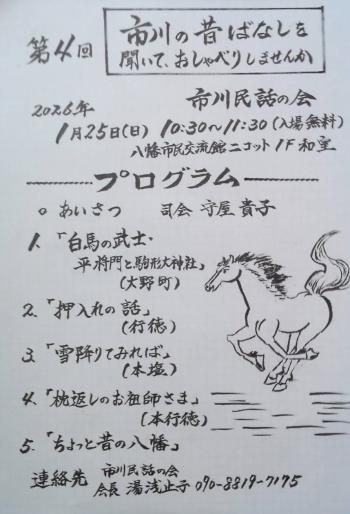 第4回
市川の昔ばなしを
聞いて、おしゃべりしませんか
2026年 市川民話の会
1月25日(日) 10:30~11:30 (入場無料)
八幡市民交流館ニコット 1F 和室
プログラム
○ あいさつ 司会 守屋貴子
1.「白馬の武士・
平将門と駒形大神社」
(大野町)
2.「押入れの話」
(行徳)
3.「雪降りてみれば」
(本塩)
4.「枕返しのお祖師さま」
(本行徳)
5.「ちょっと昔の八幡」
連絡先 市川民話の会
会長 湯浅止子 090-8819-7175